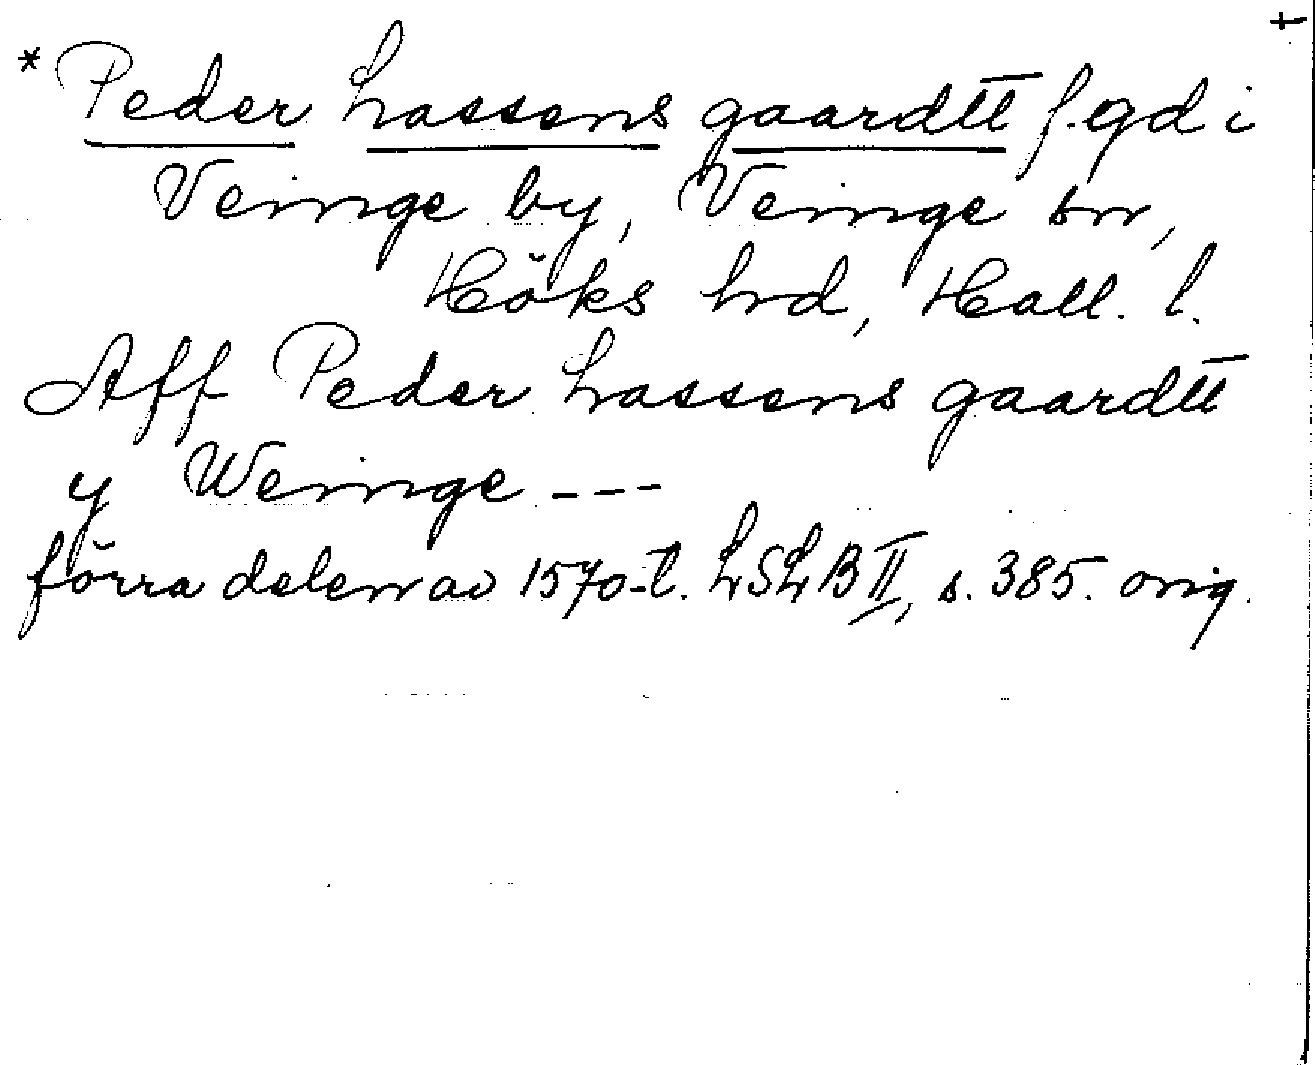 * Peder Lassens gaardtt f. gd i
Veinge by, Veinge sn,
Höks hrd, Hall. l.
Aff Peder Lassens gaardtt
y Weinge ---
förra delen av 1570-t. LSLB II, s. 385. orig.